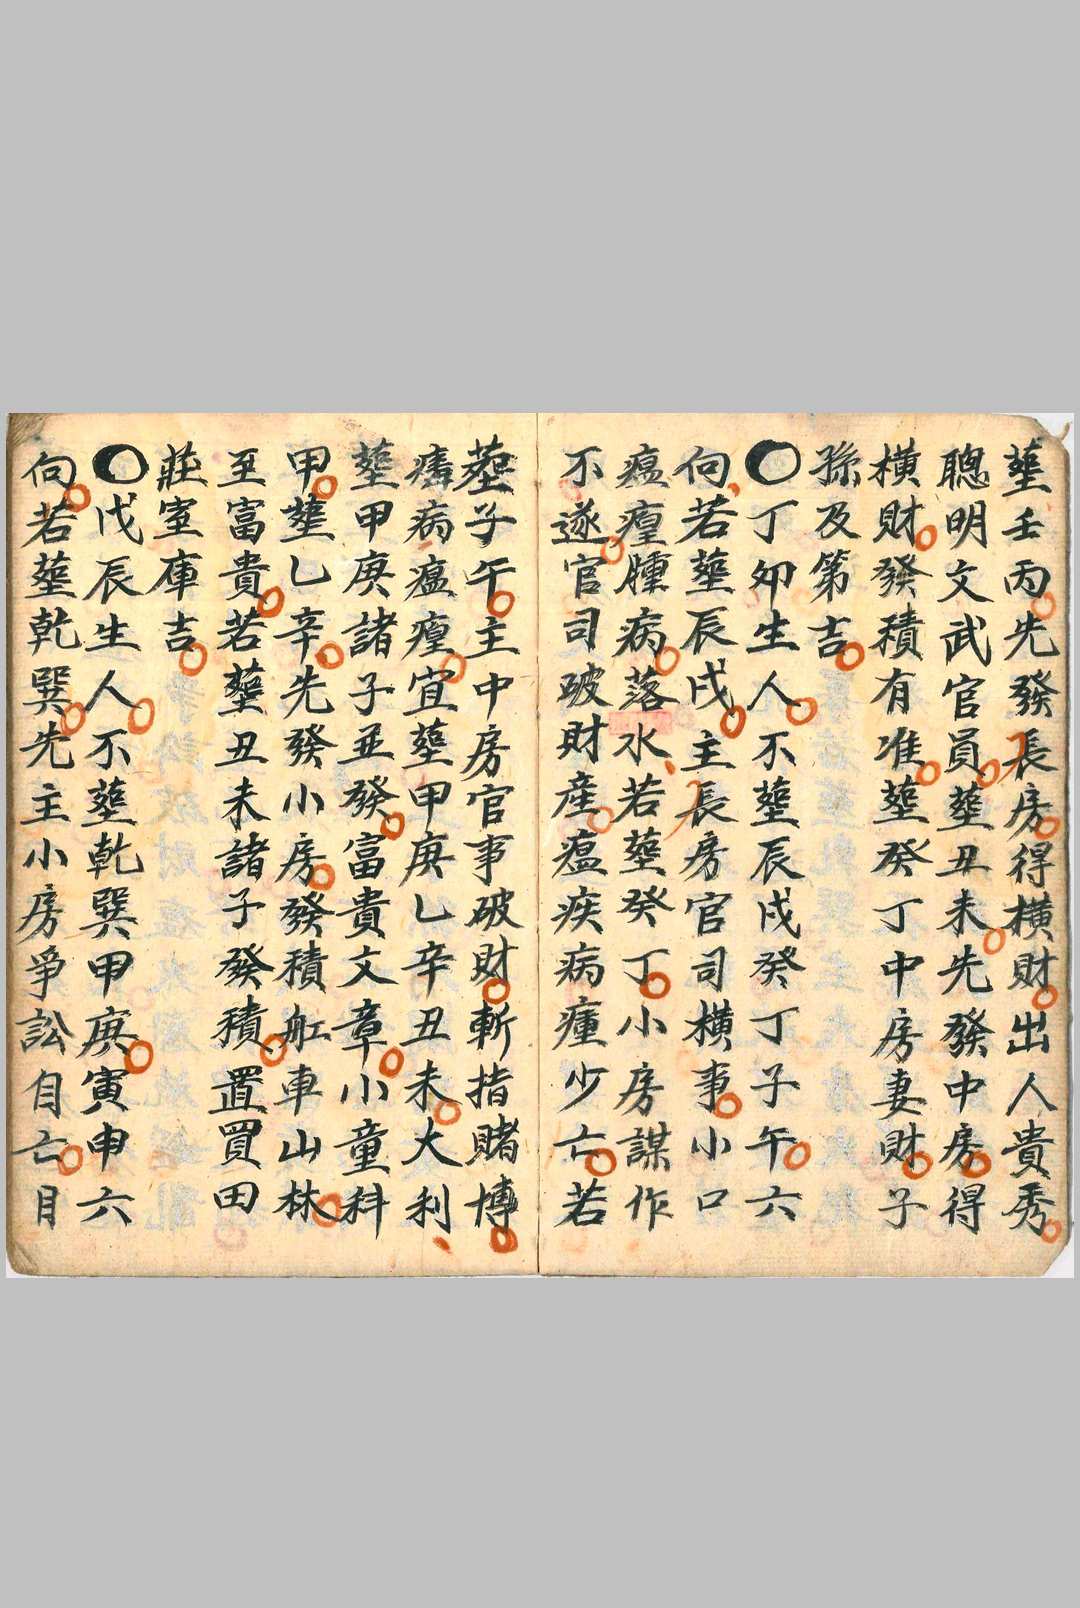 塟壬丙先發長房得橫財出人貴秀
聰明文武官員塟丑未先發中房得
橫財發積有准塟癸丁中房妻財子
孫及第吉
丁卯生人不塟辰戌癸丁子午六
向若塟辰戌主長房官司橫事小口
瘟瘟腫病落水若塟癸丁小房謀作
不遂官司破財産瘟疾病瘇少亡若
塟子午主中房官事破財斬指賭博
病瘟㾮宜塟甲庚乚辛丑未大利
塟甲庚諸子並發富貴文章小童科
甲塟乚辛先發小房發積舡車山林
至富貴若塟丑未諸子發積置買田
莊室庫吉
戊辰生人不塟乾巽甲庚寅申六
向若塟乾巽先主小房爭訟自亡目